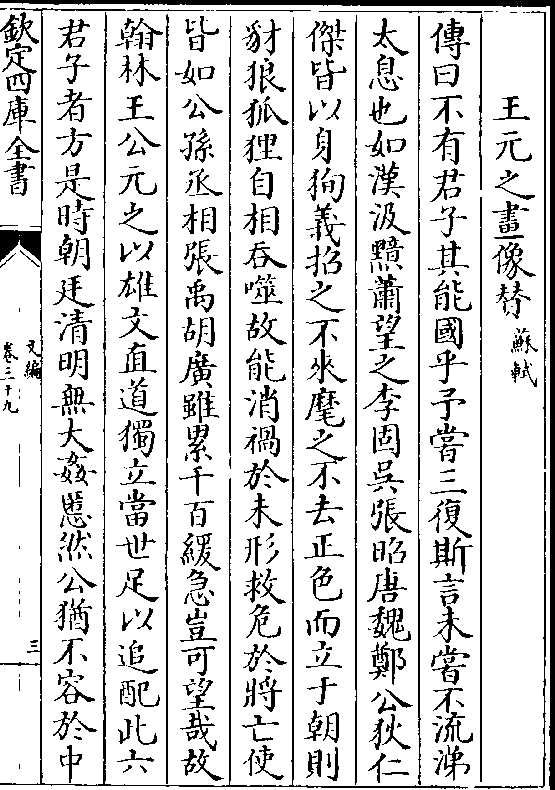 王元之畫像替 蘇軾
傳曰不有君子其能國乎予嘗三復斯言未嘗不流涕
太息也如漢汲黯蕭望之李固吳張昭唐魏鄭公狄仁
傑皆以身徇義招之不來麾之不去正色而立于朝則
豺狼狐狸自相吞噬故能消禍於未形救危於將亡使
皆如公孫丞相張禹胡廣雖累千百緩急豈可望哉故
翰林王公元之以雄文直道獨立當世足以追配此六
君子者方是時朝廷清明無大姦慝然公猶不容於中
欽定四庫全書
文編
卷三十九
三